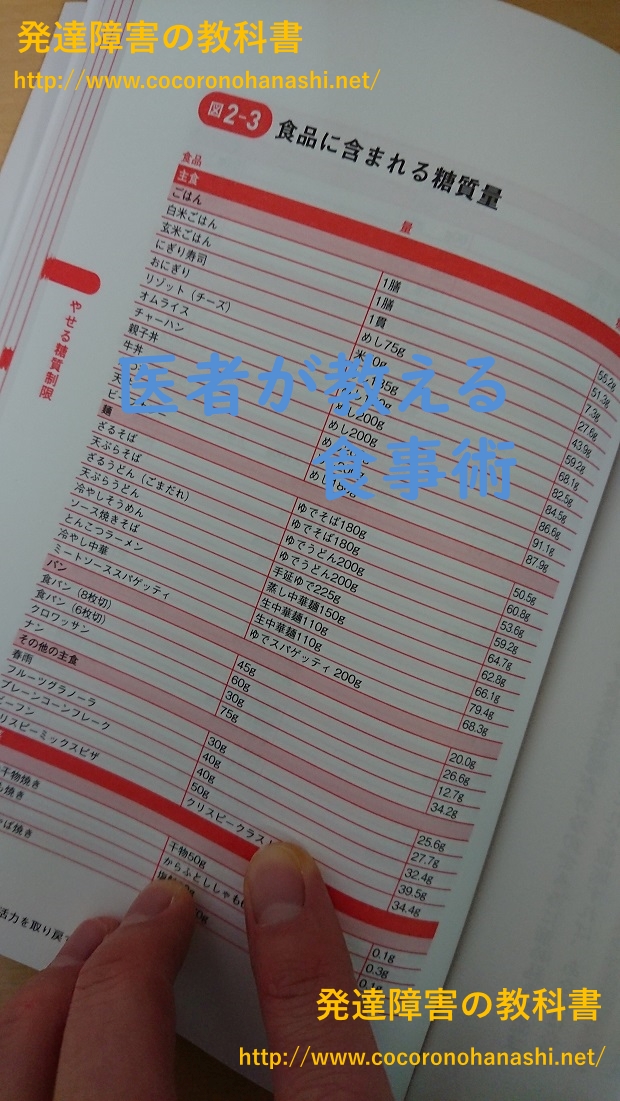 発達障害の教科書
http://www.cocoronohanashi.net/
図2-3 食品に含まれる糖質量
食品 量
主食
ごはん
白米ごはん 1膳 55.2g
玄米ごはん 1膳 51.3g
にぎり寿司 1貫 7.3g
おにぎり めし75g 27.6g
リゾット（チーズ） 43.9g
オムライス 59.2g
チャーハン めし200g 68.1g
親子丼 めし200g 82.5g
牛丼 84.5g
86.6g
91.1g
87.9g
麺
ざるそば ゆでそば180g 50.5g
天ぷらそば ゆでそば180g 60.8g
ざるうどん（ごまだれ） ゆでうどん200g 53.6g
天ぷらうどん ゆでうどん200g 59.2g
冷やしそうめん 手延ゆで225g 64.7g
ソース焼きそば 蒸し中華麺150g 62.8g
とんこつラーメン 生中華麺110g 66.1g
冷やし中華 生中華麺110g 79.4g
ミートソーススパゲッティ ゆでスパゲッティ 200g 68.3g
パン
食パン（8枚切） 45g 20.0g
食パン（6枚切） 60g 26.6g
クロワッサン 30g 12.7g
ナン 75g 34.2g
その他の主食
春雨 30g 25.6g
フルーツグラノーラ 40g 27.7g
プレーンコーンフレーク 40g 32.4g
ビーフン 50g 39.5g
リスピーミックスピザ クリスピークラスト 34.4g
干物焼き 干物50g 0.1g
焼き からふとししゃも 0.3g
ば焼き 0.1g
やせる糖質制限
活力を取り戻す
医者が教える
食事術
発達障害の教科書
http://www.cocoronohanashi.net/